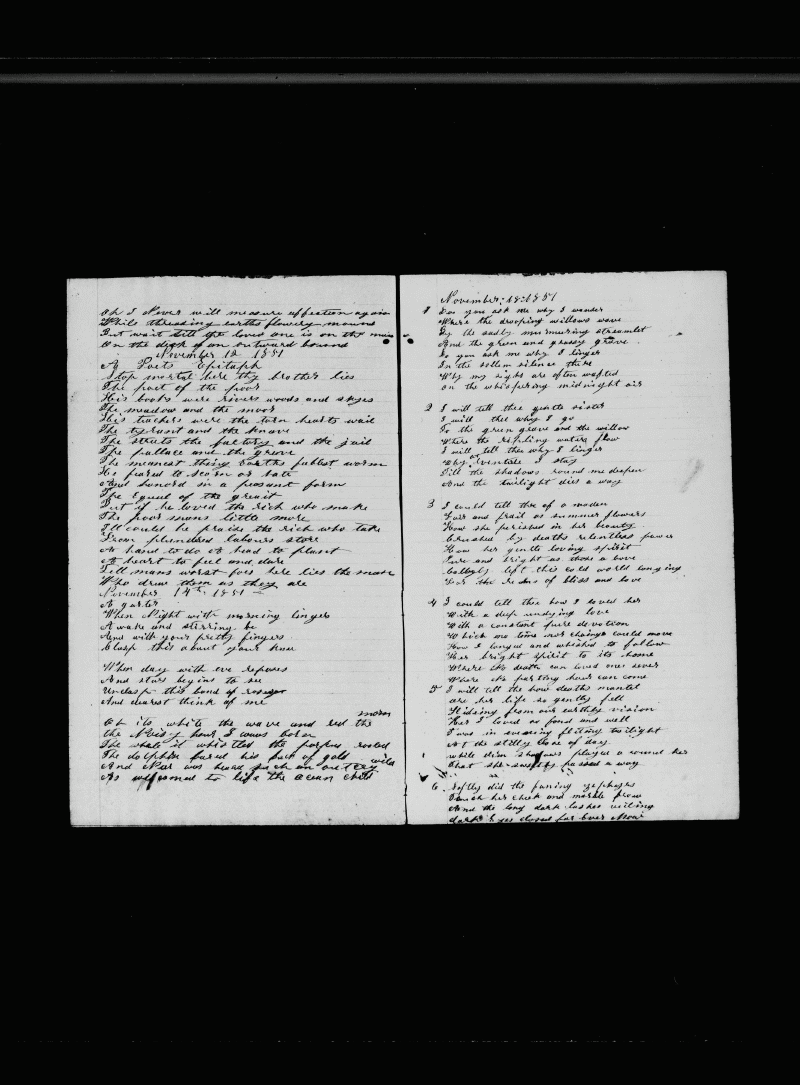 Oh I Never will measure affection again
Whils threading earths flowery mound
But wait till the loved one is on the
On the deck of an outward bound
November 12 1851
A Poets Epitaph
Stop mortal here thy brother lies
The poet of the poor
His books were rivers woods and skyes
The meadow and the moor
His teachers were the torn hearts wail
The tyrant and the knave
The streets the factory and the jail
The pallace and the grave
The meanest thing earths fublest worm
He feared to scorn or hate
And honord in a peasant form
The Equal of the greait
But if he loved the rich who make
The poor mans little more
Ill could he praise the rich who take
From plundered labours store
A hand to do A head to plant
A heart to feel and dare
Tell mans worst foes here lies the man
Who drew them as they are
November 14th 1851
A garter
When Night with morning lingers
A wake and stirring be
And with your pretty fingers
Clasp this about your knee
When day with eve reposes
And stars begins to see
Unclasp this band of roses
And dearest think of me
morn
Oh its white the wave and red the
the Noisy hour I was born
The whale it whistled the porpus rooled
The dolphin bared his back of gold
And Never was heard such an outcry wild
As welcomed to life the Ocean child
November: 18: 1851
1 Do you ask me why I wander
Where the drooping willows wave
By the sadly murmuring streamlet
And the green and grassy grave
Do you ask me why I linger
In the sollem silence there
Why my sighs are often wafted
on the whispering midnight air
2 I will tell thee gentle sister
I will thee why I go
To the green grave and the willow
Where the rippling waters flow
I will tell thee why I linger
Why at eventide I stay
Till the shadows round me deepen
And the twilight dies a way
3 I could tell thee of a maden
Fair and frail as summer flowers
How she perished in her beauty
Crushed by deaths relentless power
How her gentle loving spirit
Pure and bright as those a bove
Calmly left this cold world longing
For the redms of bliss and love
4 I could tell thee how I loved her
With a deep undying love
With a constant pure devotion
Which no time nor change could move
How I longed and whished to follow
Her bright spirit to its home
Where no death can loved ones sever
Where no parting hour can come
5 I will tell the how deaths mantel
oer her life so gently fell
Hideing from our earthly vision
Her I loved so fond and well
Twas in evening fliting twilight
At the stilly close of day
while dim shadows played a round her
That she sweetly passed a way
6 Softly did the faning zephyrs
Touch her cheek and marble brow
And the long dark lashes veiling
dark Eyes closed for Ever Now